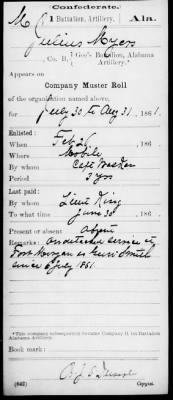 Confederate.
M 1 Battalion, Artillery. Ala.
Julius Myers
Co. B, Gee's Battalion, Alabama
Artillery.*
Appears on
Company Muster Roll
of the organization named above,
for July 30 to Aug 31, 1861.
Enlisted:
When Feb 26, 186
Where Mobile
By whom Capt
Period 3 yrs
Last paid:
By whom Lieut King
To what time June 30, 186
Present or absent Absent
Remarks: On detached service at
Fort Morgan as
since July 1861
*This company subsequently became Company B, 1st Battalion
Alabama Artillery.
Book mark:
(642) Copyist.